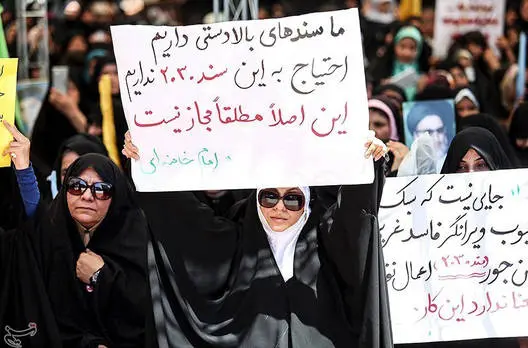 ما سندهای بالادستی داریم
احتیاج به این سند ۲۰۳۰ نداریم
این اصلاً مطلقاً مجاز نیست
امام خامنه‌ای
جایی نیست که سبک
وب ویرانگر فاسد غربی
ن جور (سند ۲۰۳۰) اعمال نفو
عنا ندارد این کار
تسنیم